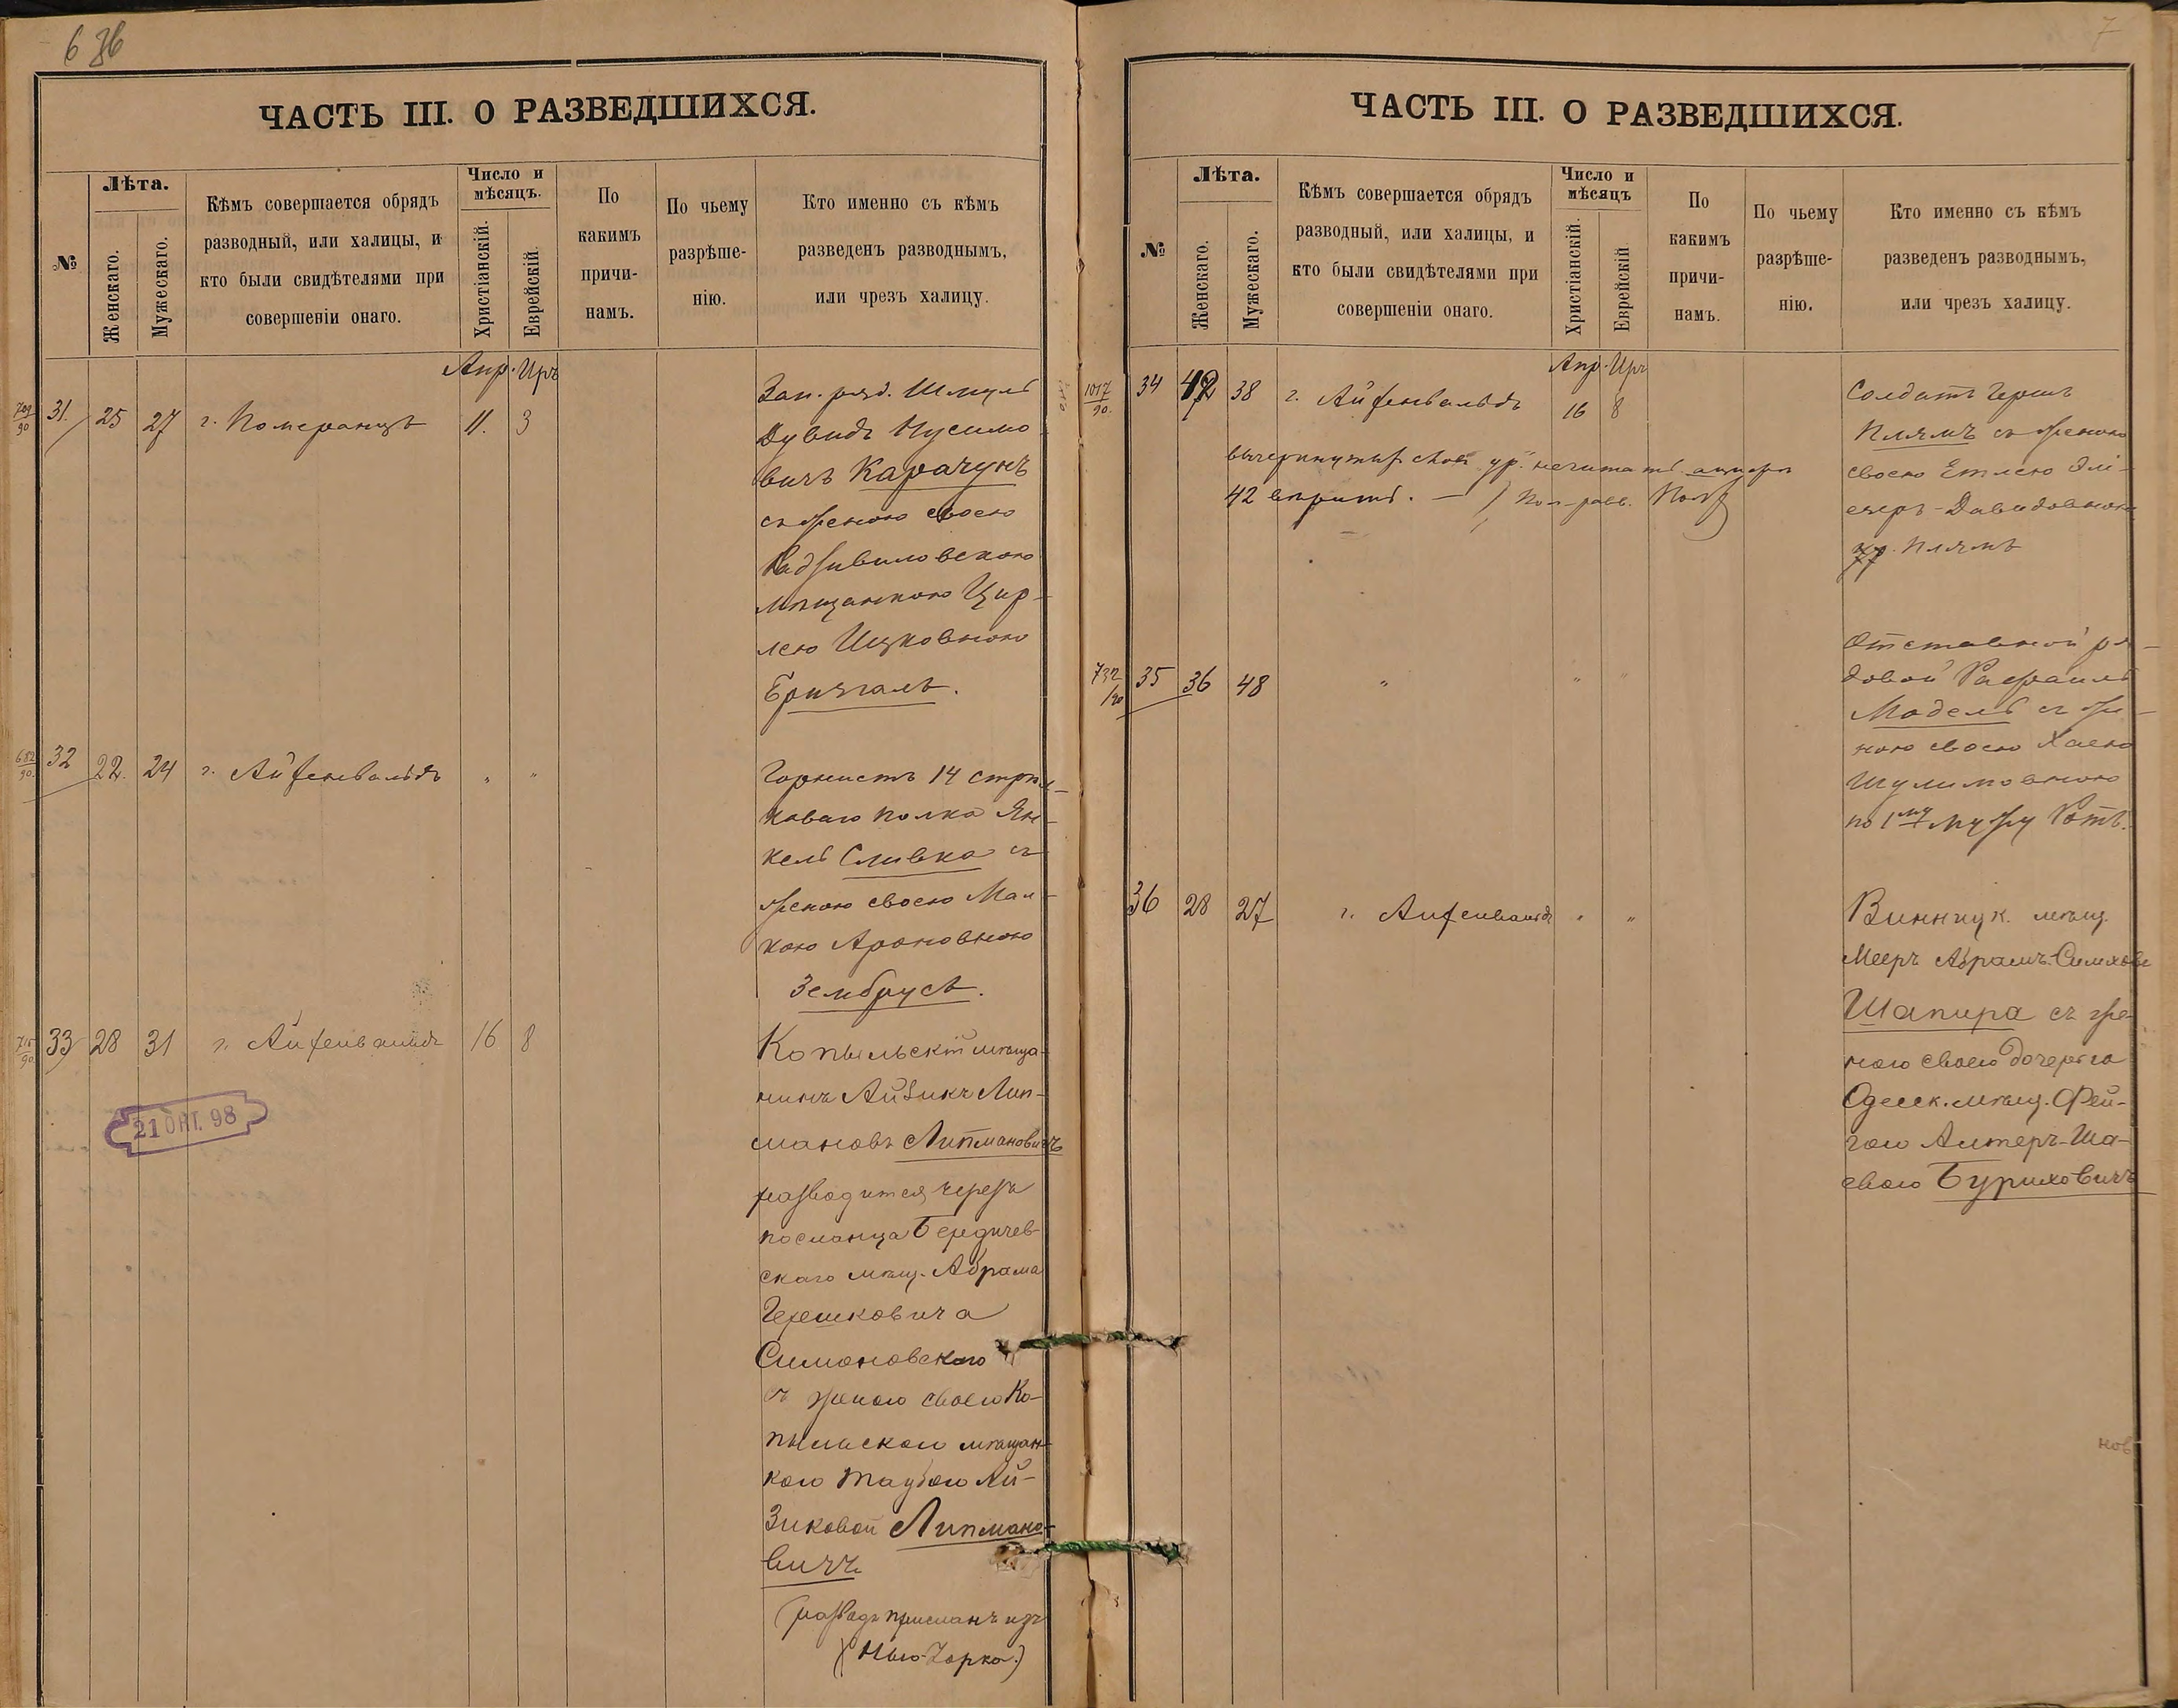 6 об
ЧАСТЬ III. О РАЗВЕДШИХСЯ.
№
Лѣта.
Женскаго.
Мужескаго.
Кѣмъ совершается обрядъ
разводный, или халицы, и
кто были свидѣтелями при
совершеніи онаго.
Число и
мѣсяцъ.
Христіанскій.
Еврейскій.
По
какимъ
причи-
намъ.
По чьему
разрѣше-
нію.
Кто именно съ кѣмъ
разведенъ разводнымъ,
или чрезъ халицу.
Апр. Иръ
709/90 31. 25 27 г. Померанцъ 11. 3
Зап. ряд. Шмуль
Дувидъ Нусимо
вичъ Карачунъ
съ женою своею
Радзивиловскою
мѣщанкою Цир-
лею Ицковною
Бризгаль.
682/90. 32 22. 24 г. Айзенвальдъ " "
Горнистъ 14 стрѣл-
коваго полка Ян-
кель Сливка съ
женою своею Мал-
кою Ароновною
Зембрусъ.
715/90 33 28 31 г. Айзенвальдъ 16 8
Копыльскій мѣща-
нинъ Айзикъ Лип-
мановъ Липмановичъ
разводится черезъ
посланца Бердичев-
скаго мѣщ. Абрама
Гершковича
Симоновскаго
съ женою своею Ко-
пыльскою мѣщан-
кою Таубою Ай-
зиковой Липмано-
вичъ
(разводъ присланъ изъ
(Нью-Іорка.)
21 ОКТ. 98
7
ЧАСТЬ III. О РАЗВЕДШИХСЯ.
№
Лѣта.
Женскаго.
Мужескаго.
Кѣмъ совершается обрядъ
разводный, или халицы, и
кто были свидѣтелями при
совершеніи онаго.
Число и
мѣсяцъ
Христіанскій.
Еврейскій
По
какимъ
причи-
намъ.
По чьему
разрѣше-
нію.
Кто именно съ кѣмъ
разведенъ разводнымъ,
или чрезъ халицу.
Апр. Иръ
1017/90. 34 42 38 г. Айзенвальдъ 16 8
нечитать
42 вѣрить. — Пом. равв.
Солдатъ Гершъ
Плямъ съ женою
своею Етлею Элі-
езеръ-Давидовною
Плямъ
732/90 35 36 48 " " "
Отставной ря-
довой Рафаилъ
Модель съ же-
ною своею Хаею
Шулимовною
по 1му мужу Ротъ.
36 28 27 г. Айзенвальдъ " "
Винниц к. мѣщ.
Мееръ Абрамъ-Симховъ
Шапира съ же-
ною своею дочерью
Одесск. мѣщ. Фей-
гою Алтеръ-Ша-
евою Буриховичъ
нов